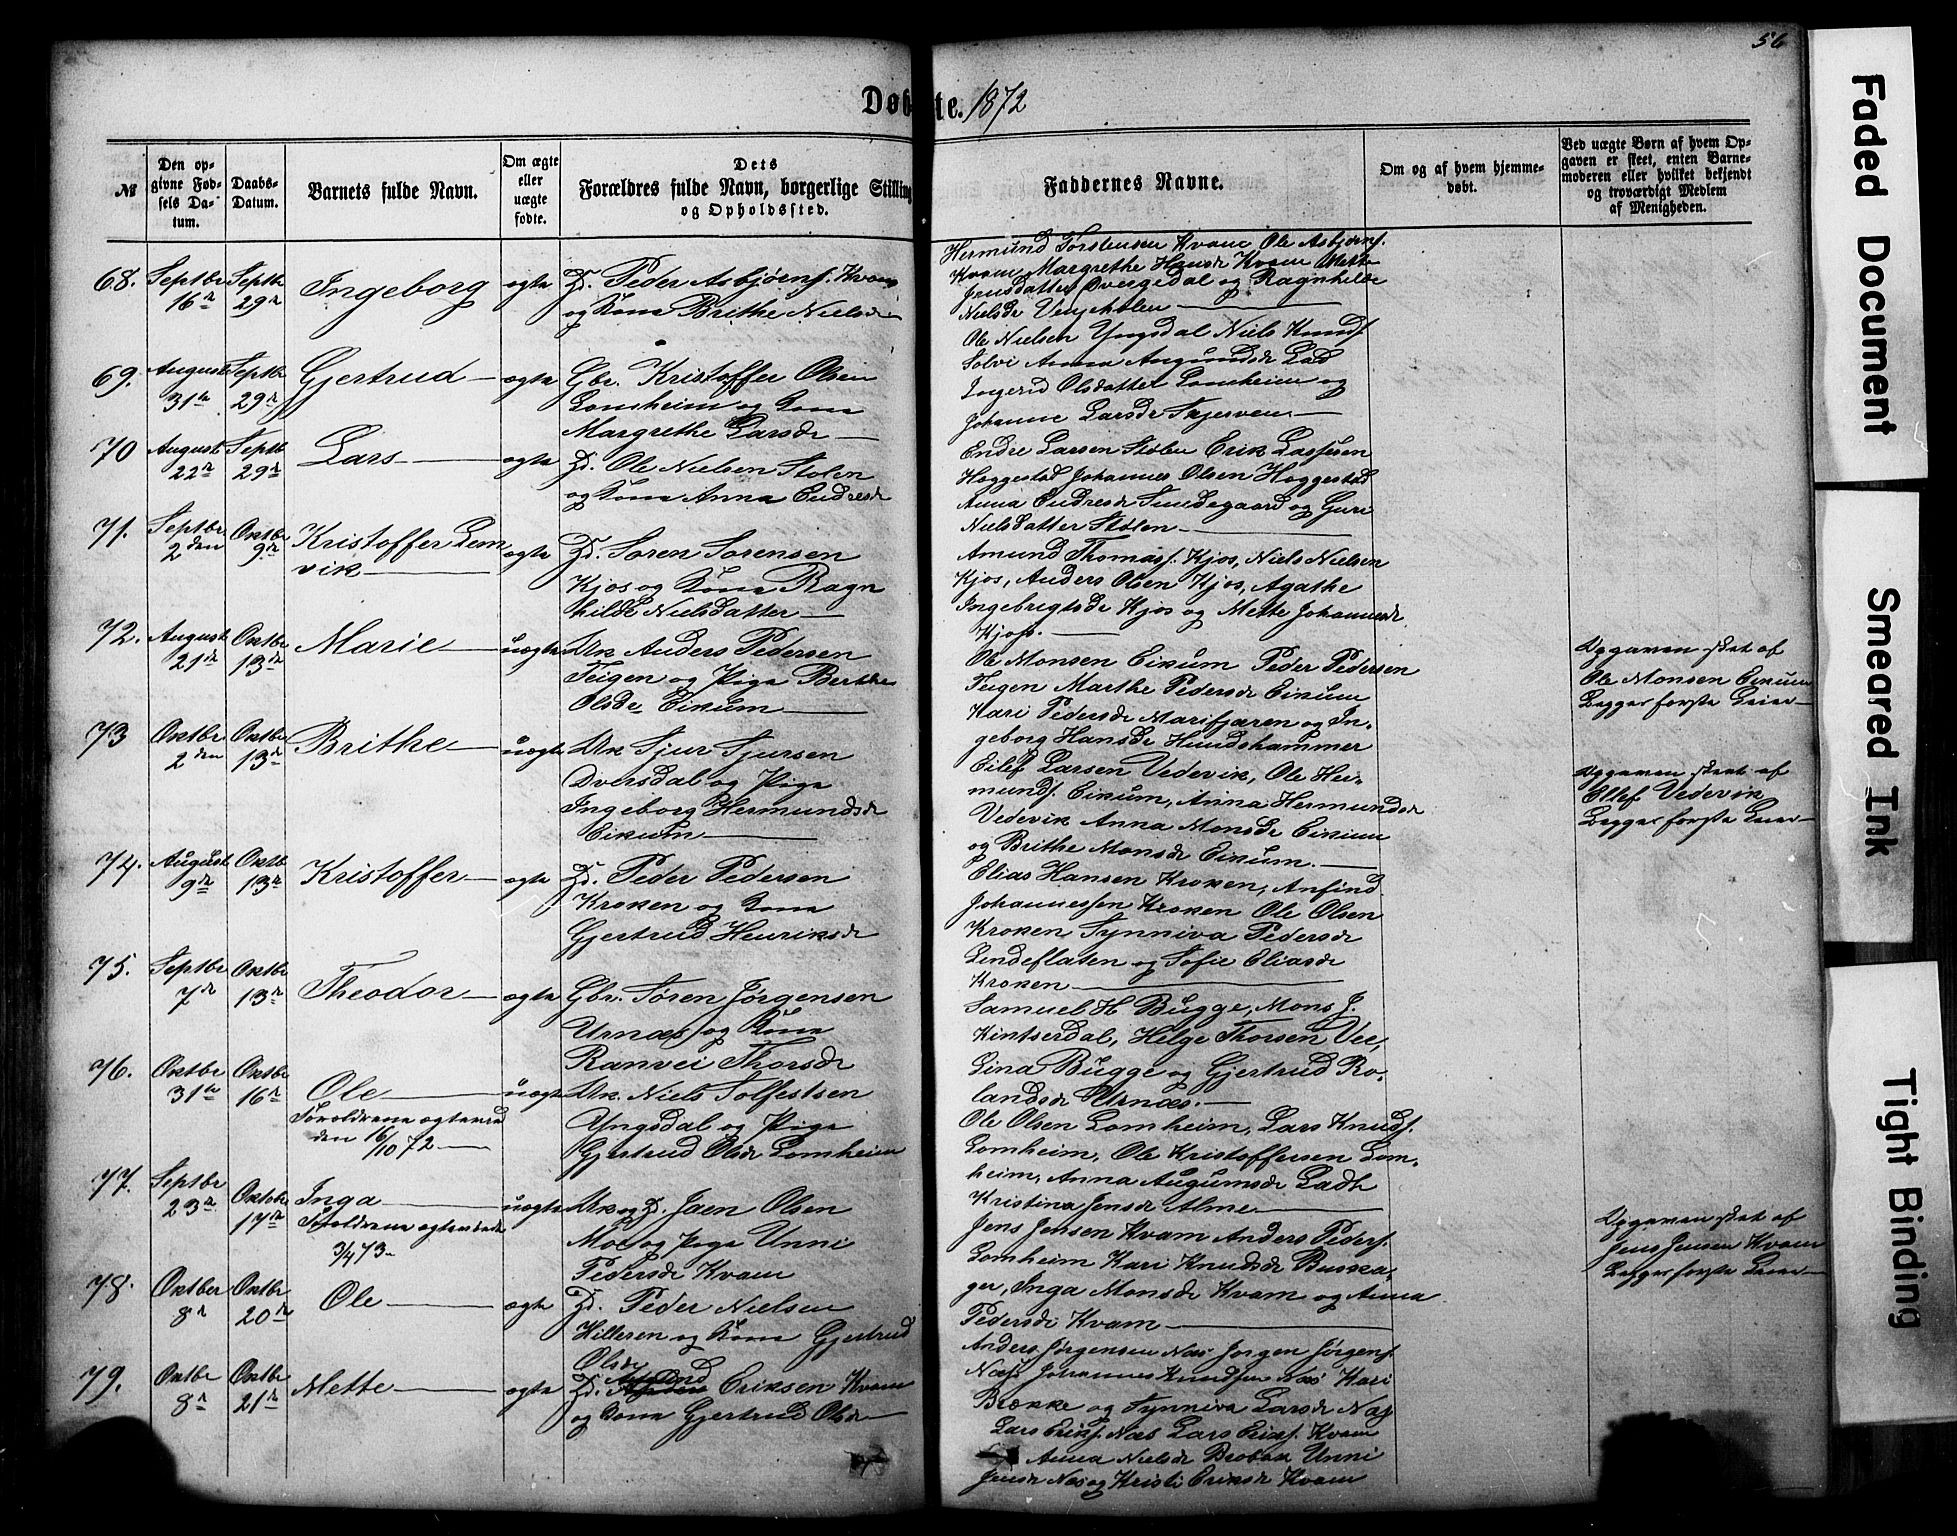 56
Døbte. 1872
№
Den opgivne Fødsels Datum.
Daabs-Datum.
Barnets fulde Navn.
Om ægte eller uægte fødte.
Dets Forældres fulde Navn, borgerlige Stilling og Opholdssted.
Faddernes Navne.
Om og af hvem hjemmedøbt.
Ved uægte Børn af hvem Opgaven er skeet, enten Barnemoderen eller hvilket bekjendt og troværdigt Medlem af Menigheden.
68. Septbr 16de Septbr 29de Ingeborg ægte Hd. Peder Asbjørns. Kvam
og Kone Brithe Nielsdr
Hermund Torstensen Kvam Ole Asbjørns.
Kvam, Margrethe Hansdr Kvam Mette
Jensdatter Øvregedal og Ragnhilde
Nielsdr Venjeholen
69. August 31te Septbr 29de Gjertrud ægte Gbr. Kristoffer Olsen
Lomheim og Kone
Margrethe Larsdr
Ole Nielsen Yngsdal Niels Knuds.
Solvi Anna Augundsdr Lad
Ingerid Olsdatter Lomheim og
Johanne Larsdr Skjerven
70 August 22de Septb. 29de Lars ægte Hd. Ole Nielsen Stølen
og Kone Anna Endresdr
Endre Larsen Stølen Erik Lassesen
Hoggestad Johannes Olsen Hoggestad
Anna Endresdr Sundegaard og Guri
Nielsdatter Stølen
71. Septbr 2den Oktbr 9de Kristoffer Lem
vik ægte Hd. Søren Sørensen
Kjos og Kone Ragn
hilde Nielsdatter
Amund Thomass. Kjos, Niels Nielsen
Kjos, Anders Olsen Kjos, Agathe
Ingebrigtsdr Kjos og Mette Johannesdr
Kjos.
72. August 21de Oktbr 13de Marie uægte Uk Anders Pedersen
Teigen og Pige Berthe
Olsdr Eikum
Ole Monsen Eikum Peder Pedersen
Teigen Marthe Pedersdr Eikum
Kari Pedersdr Marifjæren og In-
geborg Hansdr Hundshammer
Opgaven skeet af
Ole Monsen Eikum
Begges første Leier
73 Oktbr 2den Oktbr 13de Brithe uægte Uk Sjur Sjursen
Dversdal og Pige
Ingeborg Hermundsdr
Eikum
Eilef Larsen Vedevik, Ole Her-
munds. Eikum, Anna Hermundsdr
Vedevik Anna Monsdr Eikum
og Brithe Monsdr Eikum.
Opgaven skeet af
Ellef Vedevik
Begges første Leier
74. August 9de Oktb. 13de Kristoffer ægte Hd. Peder Pedersen
Kroken og Kone
Gjertrud Henriksdr
Elias Hansen Kroken, Anfind
Johannessen Kroken Ole Olsen
Kroken Synniva Pedersdr
Lindeflaten og Sofie Eliasdr
Kroken
75. Septbr 7de Oktbr 13de Theodor ægte Gbr. Søren Jørgensen
Urnæs og Kone
Ranvei Thorsdr
Samuel H Bugge, Mons J.
Kintserdal, Helge Thorsen Vee,
Lina Bugge og Gjertrud Ro-
landsdr Urnæs.
76. Oktbr 31te Oktbr 16de Ole
Forældrene ægteviede
den 16/10 72 uægte Uk. Niels Solfestsen
Yngsdal og Pige
Gjertrud Olsdr Lomheim
Ole Olsen Lomheim, Lars Knuds.
Lomheim, Ole Kristoffersen Lom-
heim, Anna Augumsdr Ladh
Kristina Jensdr Alme
77. Septbr 23de Oktobr 17de Inga
Forældrene ægteviede
3/4 73 uægte Uk og Hd. Jaen Olsen
Moe og Pige Unni
Pedersdr Kvam
Jens Jensen Kvam Anders Peders.
Lomheim Kari Knudsdr Buska-
ger, Inga Monsdr Kvam og Anna
Pedersdr Kvam
Opgaven skeet af
Jens Jensen Kvam
Begges første Leier
78. Oktber 8de Oktbr 20de Ole ægte Hd. Peder Nielsen
Hilleren og Kone Gjertrud
Olsdr
Anders Jørgensen Næs Jørgen Jørgens.
Næs Johannes Knudsen Næs Kari
Brække og Synniva Larsdr Næs
79. Oktbr 8de Oktbr 21de Mette ægte Hd. Eriksen Kvam
og Kone Gjertrud Olsdr
Lars Eriks. Næs Lars Eriks. Kvam
Anna Nielsdr Brobak Unni
Jensdr Næs og Kristi Eriksdr Kvam
Faded Document
Smeared Ink
Tight Binding